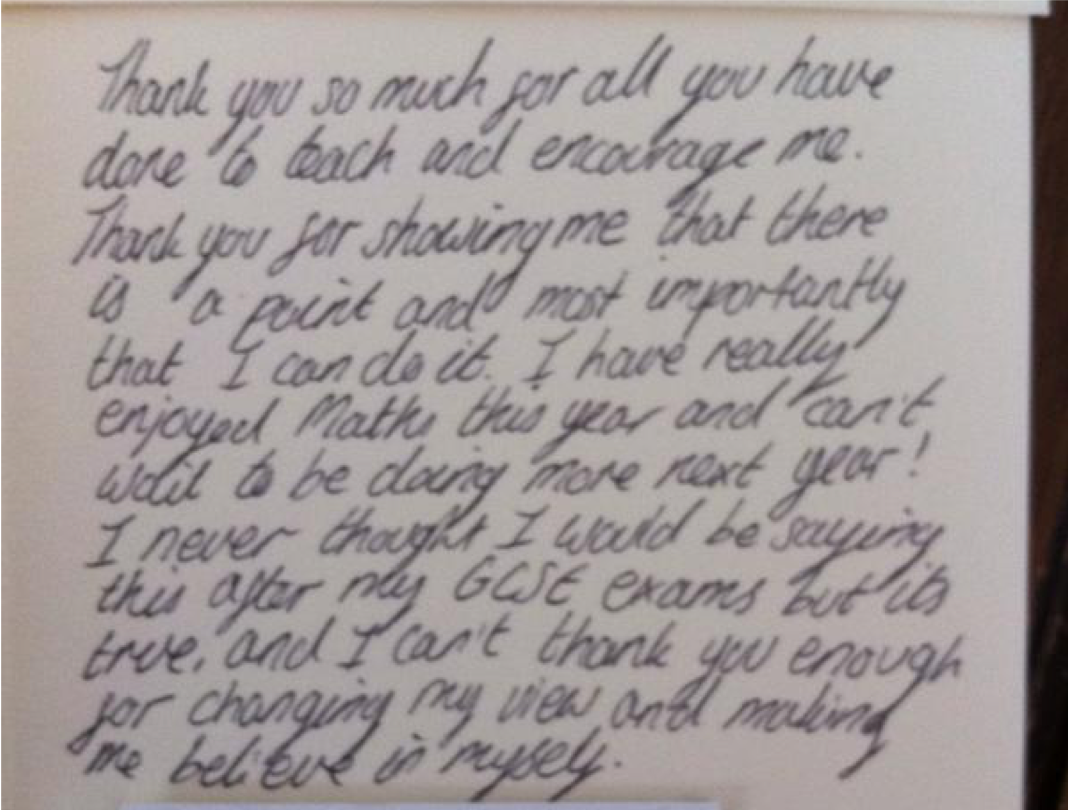 Thank you so much for all you have
done to teach and encourage me.
Thank you for showing me that there
is a point and most importantly
that I can do it. I have really
enjoyed Maths this year and can't
wait to be doing more next year!
I never thought I would be saying
this after my GCSE exams but its
true, and I can't thank you enough
for changing my view and making
me believe in myself.